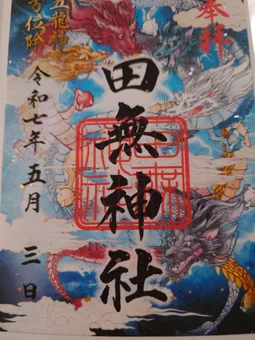 奉拝
田無神社
五龍神
方位除
令和七年五月三日